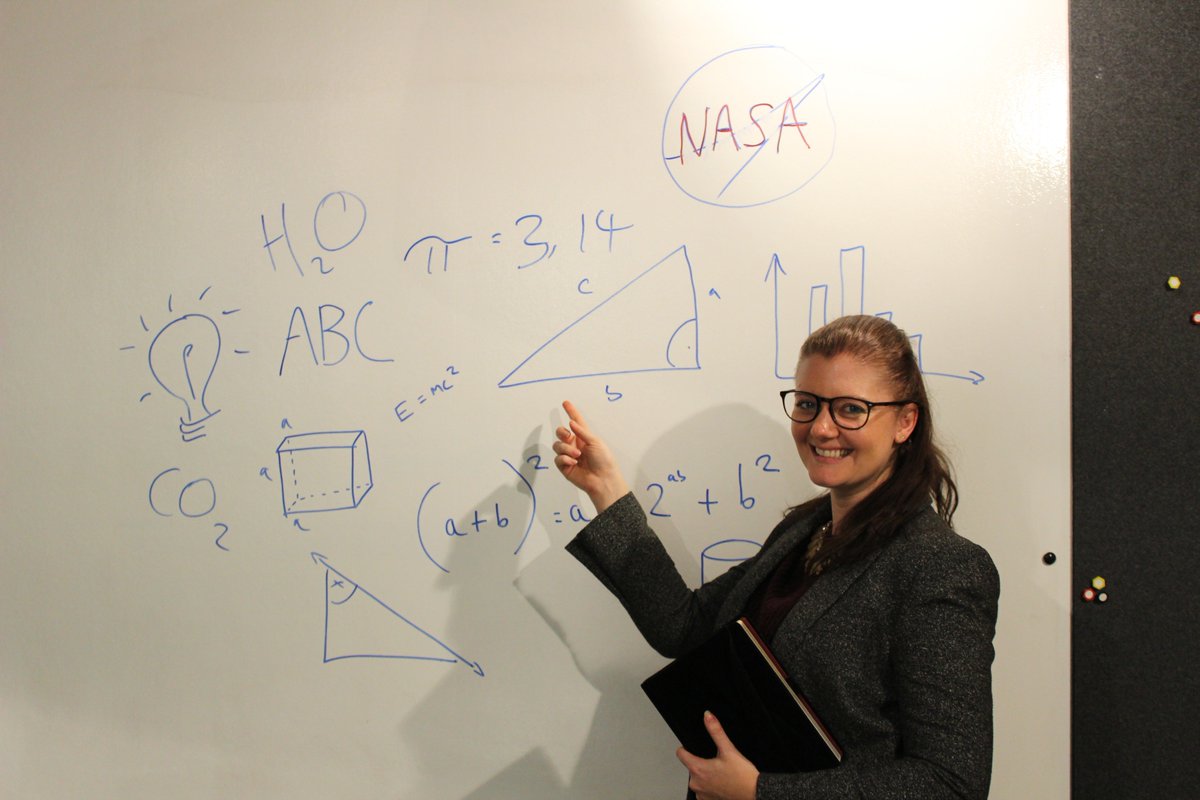 NASA
H₂O
π = 3,14
c
a
b
ABC
E = mc²
a
a
a
CO₂
(a+b)² = a
2ᵃᵇ + b²
x